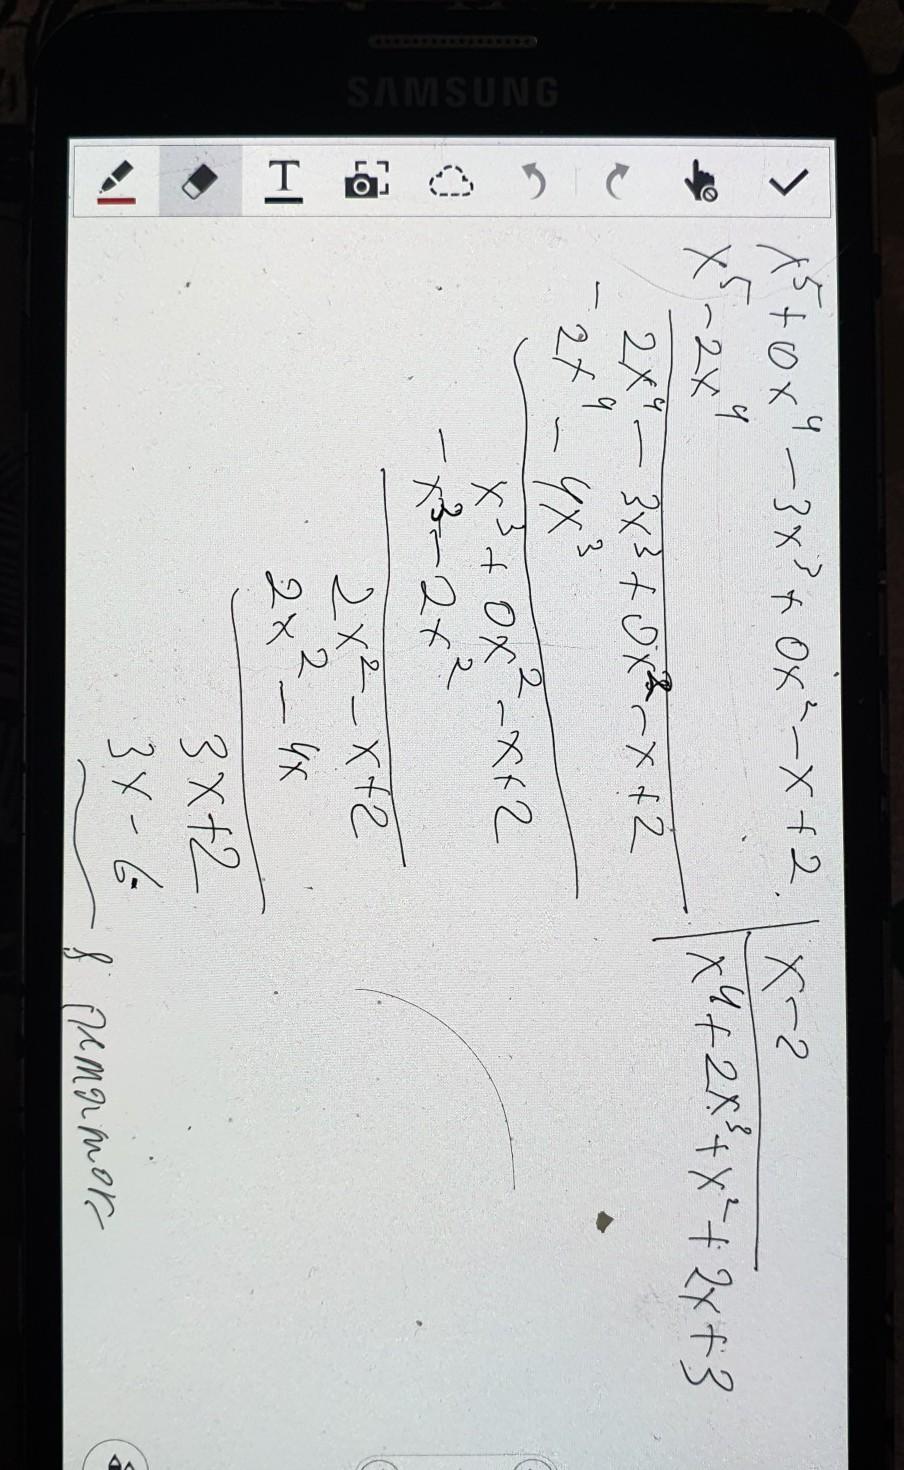 SAMSUNG
T
x⁵+0x⁴-3x³+0x²-x+2 | x-2
x⁵-2x⁴ | x⁴+2x³+x²+2x+3
2x⁴-3x³+0x²-x+2
-2x⁴-4x³
x³+0x²-x+2
-x³-2x²
2x²-x+2
2x²-4x
3x+2
3x-6
8